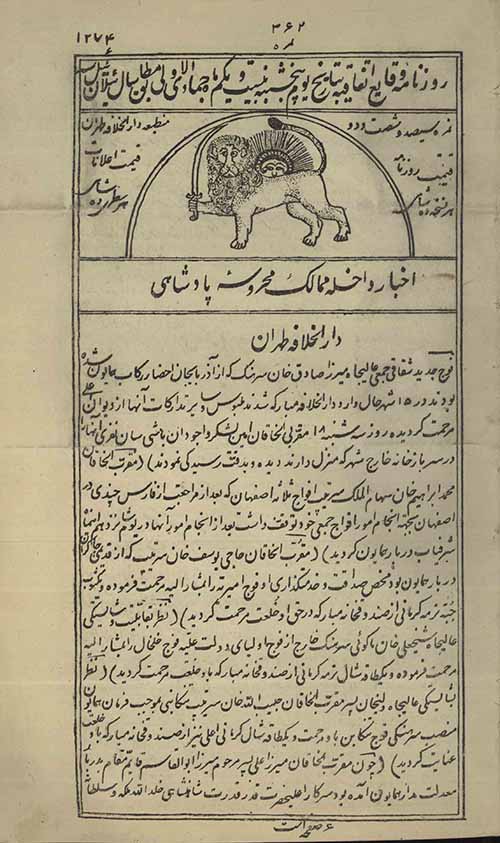 نمره ۳۶۲
۱۲۷۴
روزنامه وقایع اتفاقیه بتاریخ یوم پنجشنبه بیست و یکم ماه جمادی الاولی مطابق سال
نمره سیصد و شصت و دو
قیمت روزنامه
هر نسخه ده شاهی
منطبعه دارالخلافه طهران
قیمت اعلانات
اخبار داخله ممالک محروسه پادشاهی
دارالخلافه طهران
فوج جدید شقاقی جمعی عالیجاه میرزا صادق خان سرهنگ که از آذربایجان احضار رکاب همایون شده
بودند در ۱۵ شهر حال وارد دارالخلافه مبارکه شدند ملبوس و سایر تدارکات آنها از دیوان اعلی
مرحمت گردیده روز سه شنبه ۱۸ مقرب الخاقان امین لشکر و اجودان باشی سان نفری آنها را
در سربازخانه خارج شهر که منزل دارند دیده و بدقت رسیدگی نمودند ) ( مقرب الخاقان
محمد ابراهیم خان سهام الملک سرتیپ افواج ثلاثه اصفهان که بعد از مراجعت از فارس چندی در
اصفهان بجهة انجام امور افواج جمعی خود توقف داشت بعد از انجام امور آنها در
شرفیاب دربار همایون گردید ) ( مقرب الخاقان حاجی یوسف خان سرتیپ که از قدیم
دربار همایون بود محض صداقت و خدمتگذاری او فوج امیریه را بمشارالیه مرحمت فرموده و یکثوب
جبه ترمه کرمانی از صندوقخانه مبارکه در حق او خلعت مرحمت گردید ) ( نظر بقابلیت و شایستگی
عالیجاه شیخعلی خان ماکوئی سرهنگ خارج از فوج اولیای دولت علیه فوج خلخال را بمشارالیه
مرحمت فرموده و یکطاقه شال ترمه کرمانی از صندوقخانه مبارکه باو خلعت مرحمت گردید ) ( نظر
بشایستگی عالیجاه ولیخان پسر مقرب الخاقان حبیب الله خان سرتیپ تنکابنی بموجب فرمان همایون
منصب سرهنگی فوج تنکابن باو مرحمت و یکطاقه شال کرمانی اعلی نیز از صندوقخانه مبارکه باو خلعت
عنایت گردید ) ( چون مقرب الخاقان میرزا علی پسر مرحوم میرزا ابوالقاسم قایم مقام بدربار
معدلت مدار همایون آمده بود سرکار اعلیحضرت قدر قدرت شاهنشاهی خلد الله ملکه و سلطانه
۶ صفحه است